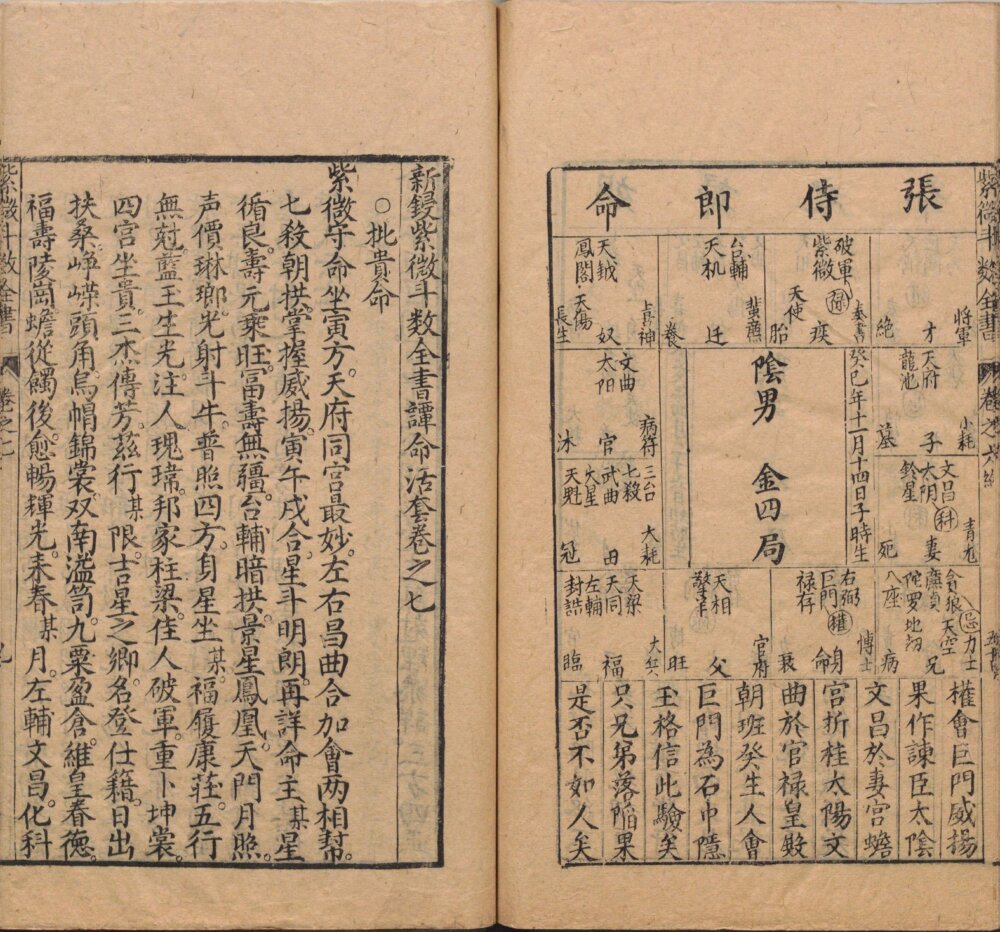 張侍郎命
將軍
才
絕
破軍
紫微
祿
天使
奏書
疾
胎
台輔
天机
蜚廉
迁
養
天鉞
鳳閣
天傷
喜神
奴
長生
天府
龍池
小耗
子
墓
癸巳年十一月十四日子時生
陰男
金四局
文曲
太陽
病符
官
沐
文昌
太陰
鈴星
科
青龙
妻
死
三台
七殺
武曲
火星
天魁
大耗
田
冠
貪狼
天空
廉貞
陀罗
地刼
八座
忌
力士
兄
病
右弼
巨門
祿存
權
博士
身
命
衰
天相
擎羊
官府
父
旺
天梁
天同
左輔
封誥
福
臨
權會巨門威揚
果作諫臣太陰
文昌於妻宮蟾
宮折桂太陽文
曲於官禄皇殿
朝班癸生人會
巨門為石巾隱
玉格信此驗矣
只兄弟落陷果
是否不如人矣
紫微斗數全書
卷之六終
新鋟紫微斗数全書譚命活套卷之七
○批貴命
紫微守命坐寅方。天府同宮最妙。左右昌曲合加會两相幇。
七殺朝拱。掌握威揚。寅午戌合星斗明朗。再詳命主某星
循良。壽元乘旺。冨壽無疆。台輔暗拱。景星鳳凰。天門月照。
声價琳瑯。光射斗牛。普照四方。身星坐某。福履康莊。五行
無尅。藍王生光。注人瑰瑋。邦家柱梁。佳人破軍。重卜坤裳。
四宮坐貴。三杰傳芳。茲行某限。吉星之卿。名登仕籍。日出
扶桑。崢嶸頭角。烏帽錦裳。双南溢笥。九粟盈倉。維皇春德。
福壽陵崗。蟾從髑後愈暢輝光。耒春某月。左輔文昌。化科
紫微斗数全書
卷之七